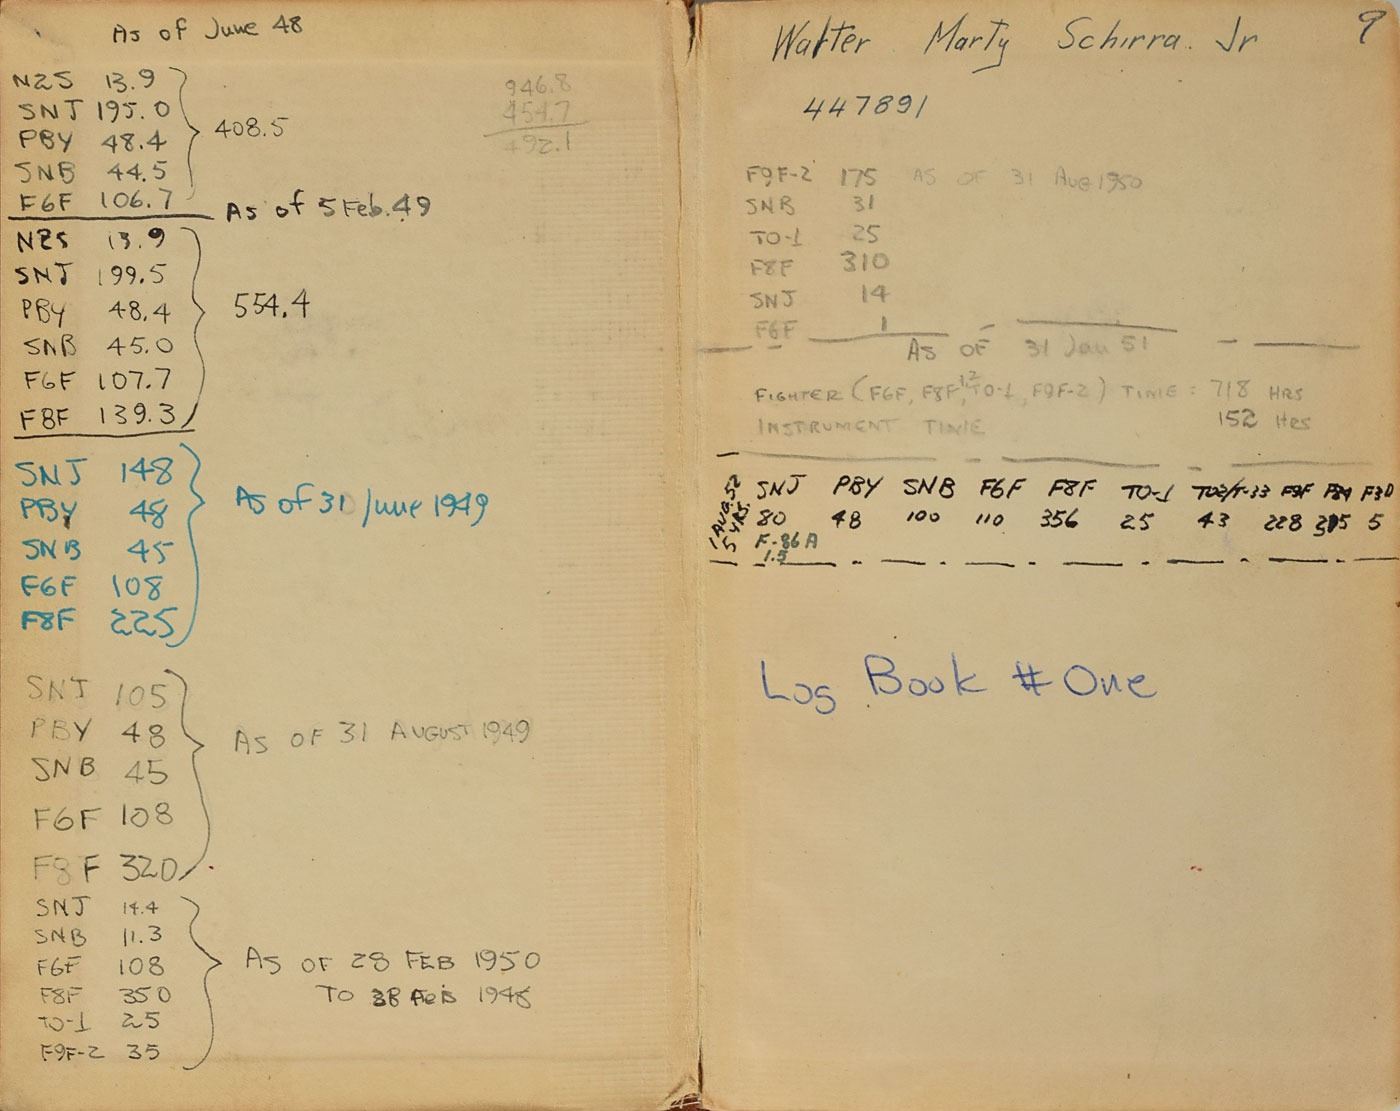 As of June 48
N2S 13.9
SNJ 195.0
PBY 48.4
SNB 44.5
F6F 106.7
408.5
946.8
454.7
492.1
As of 5 Feb. 49
N2S 13.9
SNJ 199.5
PBY 48.4
SNB 45.0
F6F 107.7
F8F 139.3
554.4
SNJ 148
PBY 48
SNB 45
F6F 108
F8F 225
As of 31 June 1949
SNJ 105
PBY 48
SNB 45
F6F 108
F8F 320
As of 31 August 1949
SNJ 14.4
SNB 11.3
F6F 108
F8F 350
TO-1 25
F9F-2 35
As of 28 Feb 1950
To Feb 1948
9
Walter Marty Schirra Jr
447891
F9F-2 175 As of 31 Aug 1950
SNB 31
TO-1 25
F8F 310
SNJ 14
F6F 1
As of 31 Jan 51
Fighter (F6F, F8F 1,2, TO-1, F9F-2) Time: 718 Hrs
Instrument Time 152 Hrs
1 Aug. 52
5 yrs.
SNJ PBY SNB F6F F8F TO-1 TO2/T-33 F9F F84 F3D
80 48 100 110 356 25 43 228 5
F-86A
1.5
Log Book # One